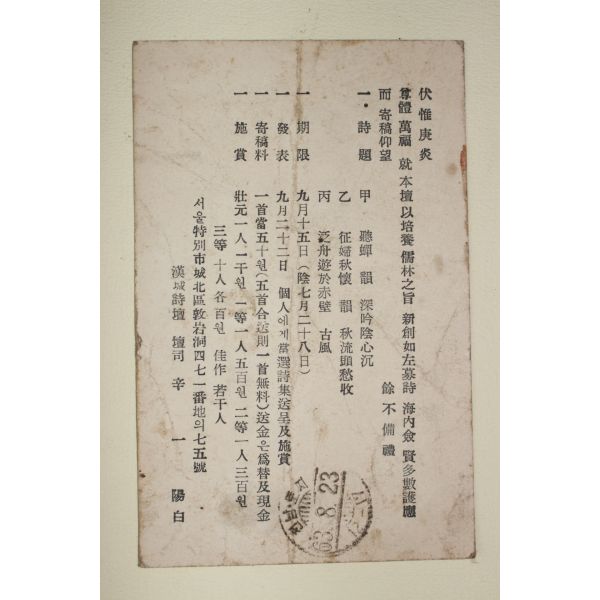 伏惟庚炎
尊體 萬福 就 本壇以培養 儒林之旨 新創如左募詩 海內僉 賢多數護應
而 寄稿仰望 餘不備禮
一・詩題 甲 聽蟬 韻 深吟陰心沉
乙 征婦秋懷 韻 秋流頭愁收
丙 泛舟遊於赤壁 古風
一 期限 九月十五日(陰七月二十八日)
一 發表 九月二十二日 個人에게當選詩集送呈及施賞
一 寄稿料 一首當五十원(五首合送則一首無料)送金은爲替及現金
一 施賞 壯元一人 二千원 一等一人五百원 二等一人三百원
三等 十人 各百원 佳作 若干人
서울特別市城北區敦岩洞四七一番地의七五號
漢城詩壇 壇司 辛 一 陽 白
63.8.23